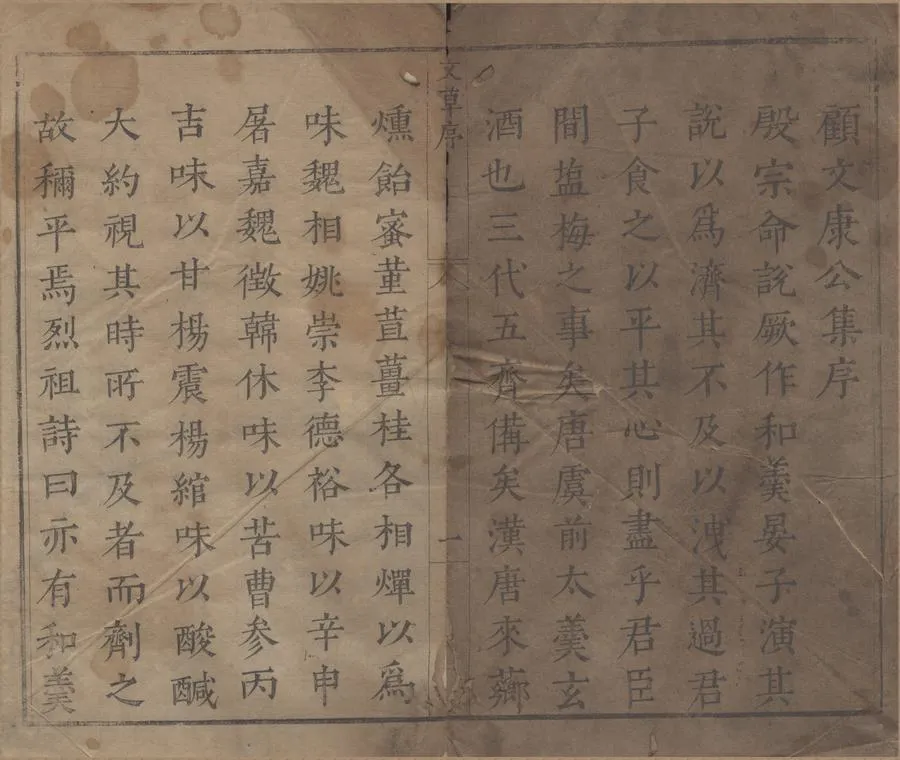 顧文康公集序
殷宗命說厥作和羹晏子演其
說以爲濟其不及以洩其過君
子食之以平其心則盡乎君臣
間塩梅之事矣唐虞前太羹玄
酒也三代五齊備矣漢唐來薌
文草序
一
燻飴蜜菫荁薑桂各相燀以爲
味魏相姚崇李德裕味以辛申
屠嘉魏徵韓休味以苦曹參丙
吉味以甘楊震楊綰味以酸醎
大約視其時所不及者而劑之
故稱平焉烈祖詩曰亦有和羹